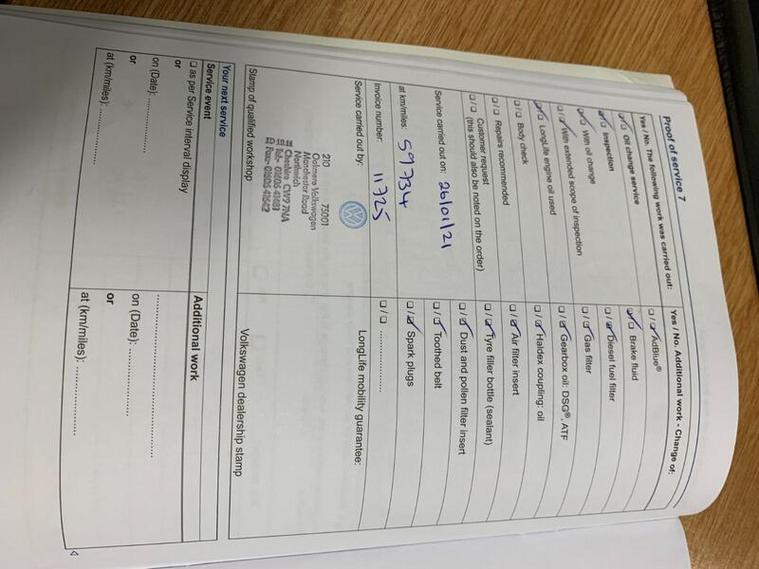 Proof of service 7
Yes / No. The following work was carried out:
☐/☑ Oil change service
☑/☐ Inspection
☑/☐ With oil change
☐/☑ With extended scope of inspection
☑/☐ LongLife engine oil used
☐/☐ Body check
☐/☐ Repairs recommended
☐/☐ Customer request
(this should also be noted on the order)
Service carried out on: 26/01/21
at km/miles: 59734
Invoice number: 11725
Service carried out by:
210 75001
Oakmere Volkswagen
Manchester Road
Northwich
Cheshire CW9 7NA
Stamp of qualified workshop
Yes / No. Additional work - Change of:
☐/☑ AdBlue®
☑/☐ Brake fluid
☐/☑ Diesel fuel filter
☐/☑ Gas filter
☐/☑ Gearbox oil: DSG®, ATF
☐/☑ Haldex coupling: oil
☐/☑ Air filter insert
☐/☑ Tyre filler bottle (sealant)
☐/☑ Dust and pollen filter insert
☐/☑ Toothed belt
☐/☑ Spark plugs
☐/☐ ....................
LongLife mobility guarantee:
Volkswagen dealership stamp
Your next service
Service event
☐ as per Service interval display
or
on (Date): ....................
or
at (km/miles): ....................
Additional work
....................
on (Date): ....................
or
at (km/miles): ....................